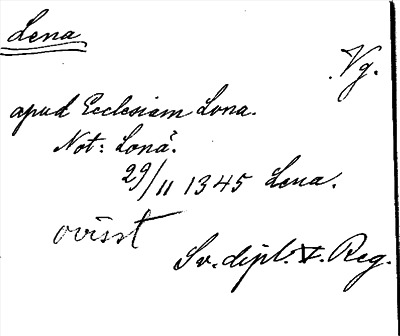 Lena
Vg.
apud Ecclesiam Lona.
Not: Lonå.
29/11 1345 Lena.
ovisst
Sv. dipl. V. Reg.